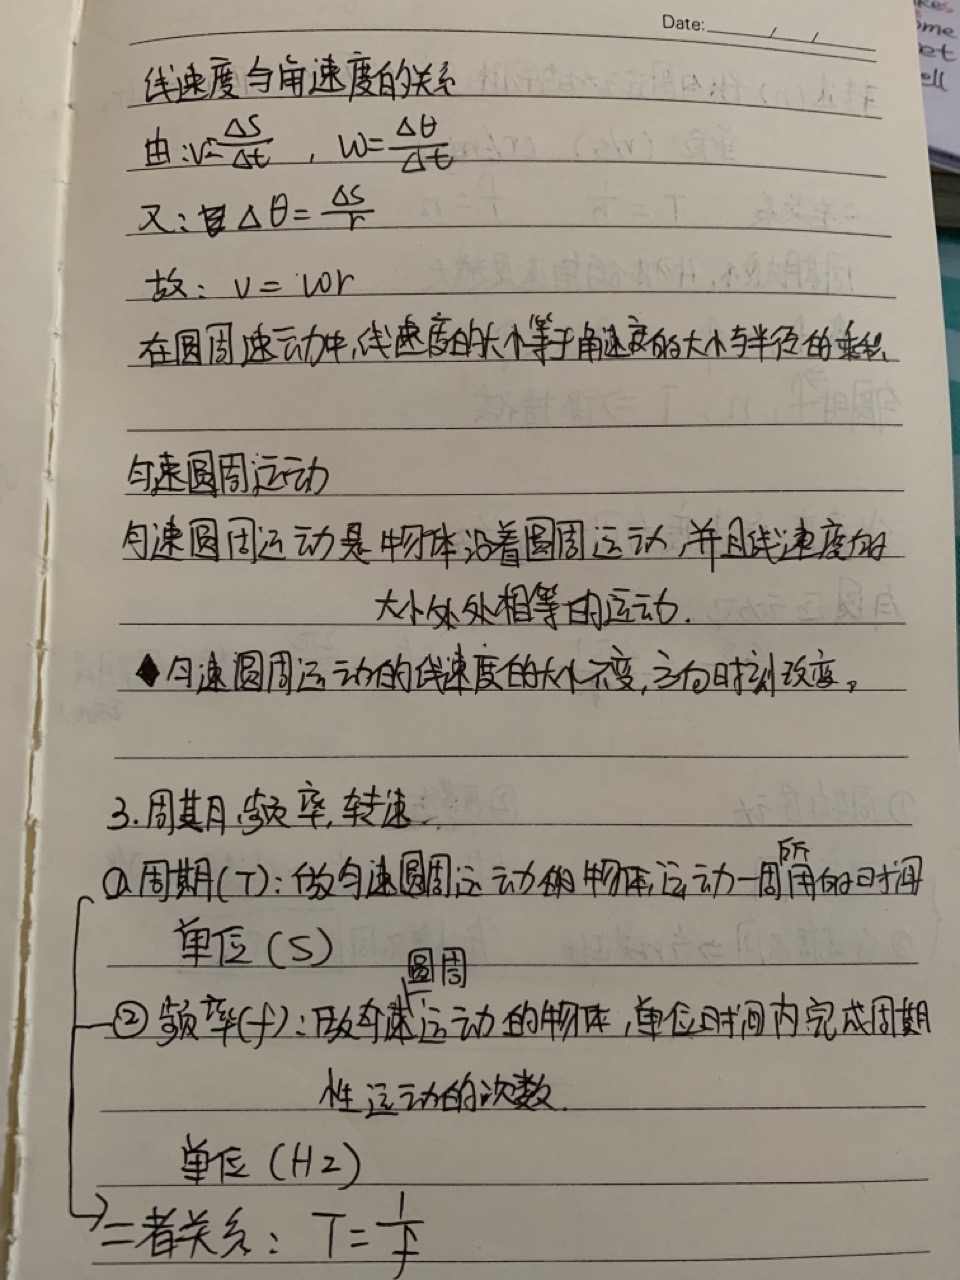 Date: / /
线速度与角速度的关系
由:v=Δs/Δt , ω=Δθ/Δt
又: Δθ=Δs/r
故: v=ωr
在圆周速运动中,线速度的大小等于角速度的大小与半径的乘积
匀速圆周运动
匀速圆周运动是物体沿着圆周运动,并且线速度的
大小处处相等的运动.
◆匀速圆周运动的线速度的大小不变,方向时刻改变。
3.周期,频率,转速.
①周期(T):做匀速圆周运动的物体,运动一周所用的时间
单位(S)
②频率(f):做匀速圆周运动的物体,单位时间内完成周期
性运动的次数.
单位(Hz)
二者关系: T=1/f
kes
ome
et
ell